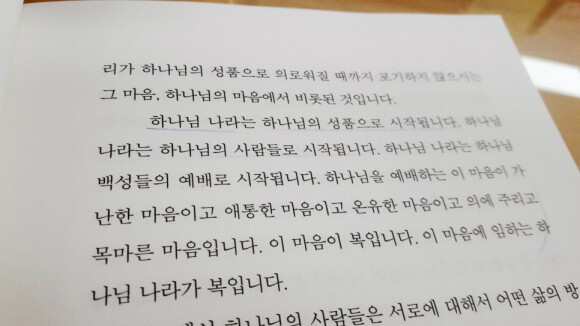 리가 하나님의 성품으로 의로워질 때까지 포기하지 않으시는
그 마음, 하나님의 마음에서 비롯된 것입니다.
하나님 나라는 하나님의 성품으로 시작됩니다. 하나님
나라는 하나님의 사람들로 시작됩니다. 하나님 나라는 하나님
백성들의 예배로 시작됩니다. 하나님을 예배하는 이 마음이 가
난한 마음이고 애통한 마음이고 온유한 마음이고 의에 주리고
목마른 마음입니다. 이 마음이 복입니다. 이 마음에 임하는 하
나님 나라가 복입니다.
하나님의 사람들은 서로에 대해서 어떤 삶의 방